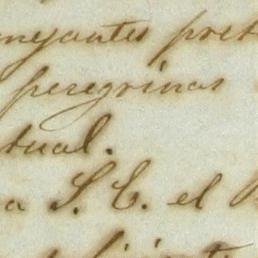 mejantes pret
peregrinas
tual.
a S. E. el